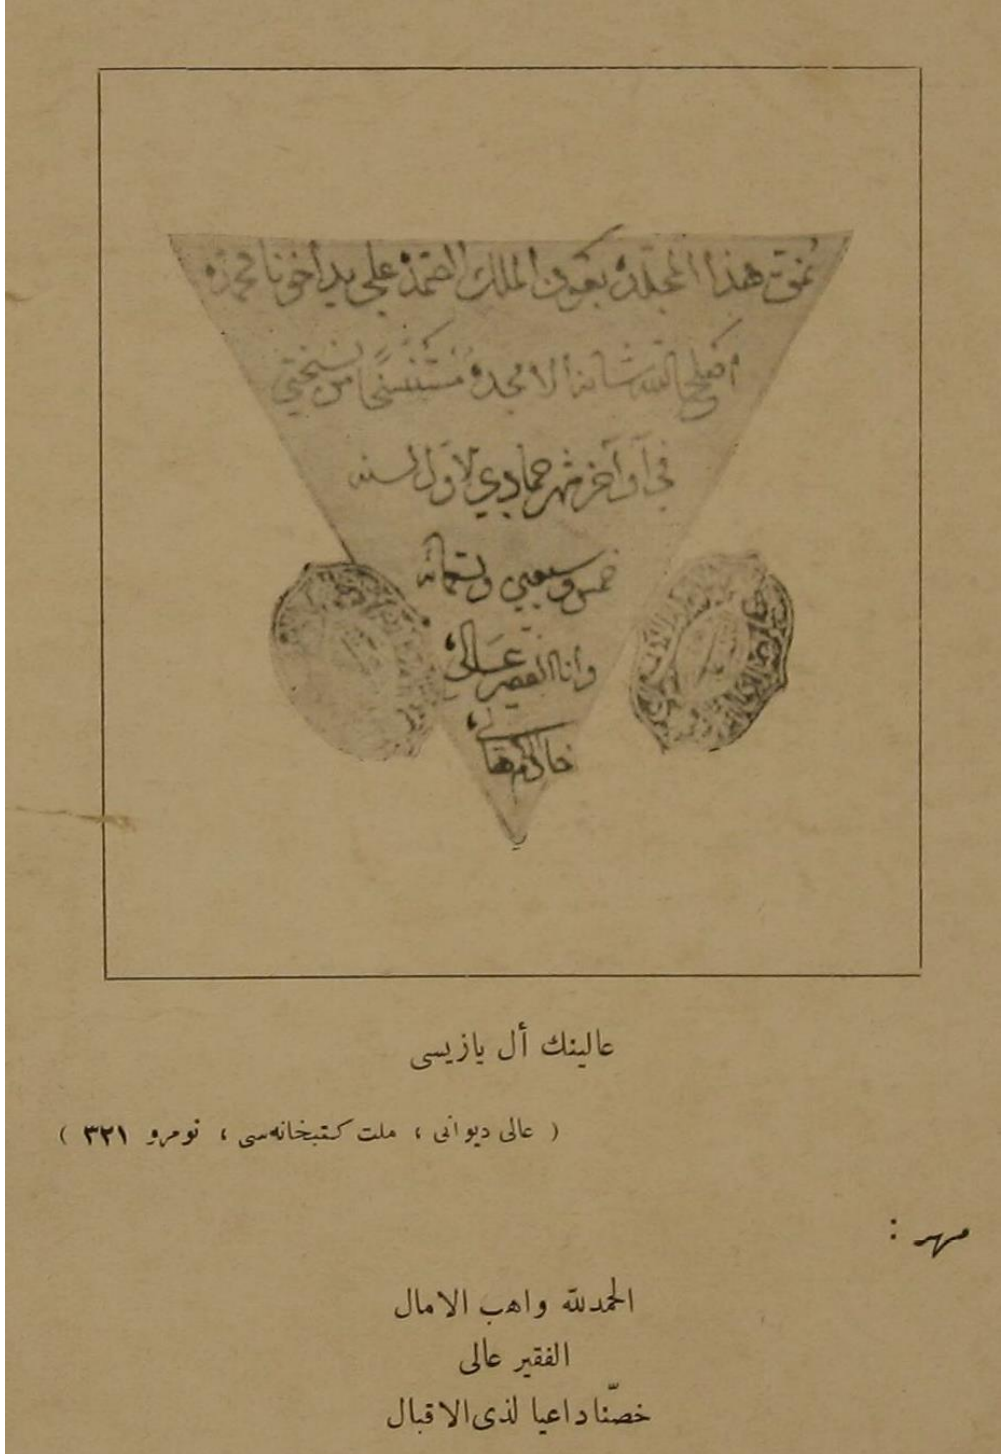 نمق هذا المجلد بعون الملك الصمد على يد أخونا محمد
الله شانه الامجد مستنسخا من نسختي
في أواخر شهر جمادي الاول لسنه
خمس وسبعين وتسعمائه
وانا الفقير عالى
عالينك أل يازيسى
( عالى ديوانى ، ملت كتبخانه‌سى ، نومرو ٣٢١ )
مهر :
الحمدلله واهب الامال
الفقير عالى
خصّنا داعيا لذى الاقبال